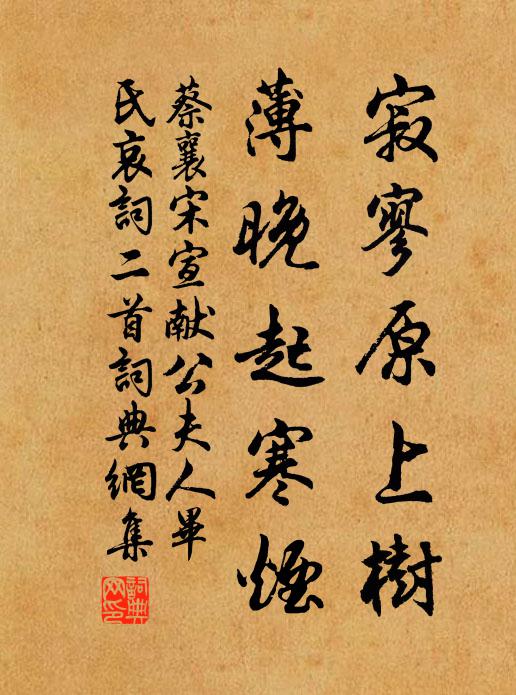 寂寥原上樹
薄晚起寒煙
蔡襄宋宣献公夫人畢
氏哀詞二首詞典網集
詞典
网印